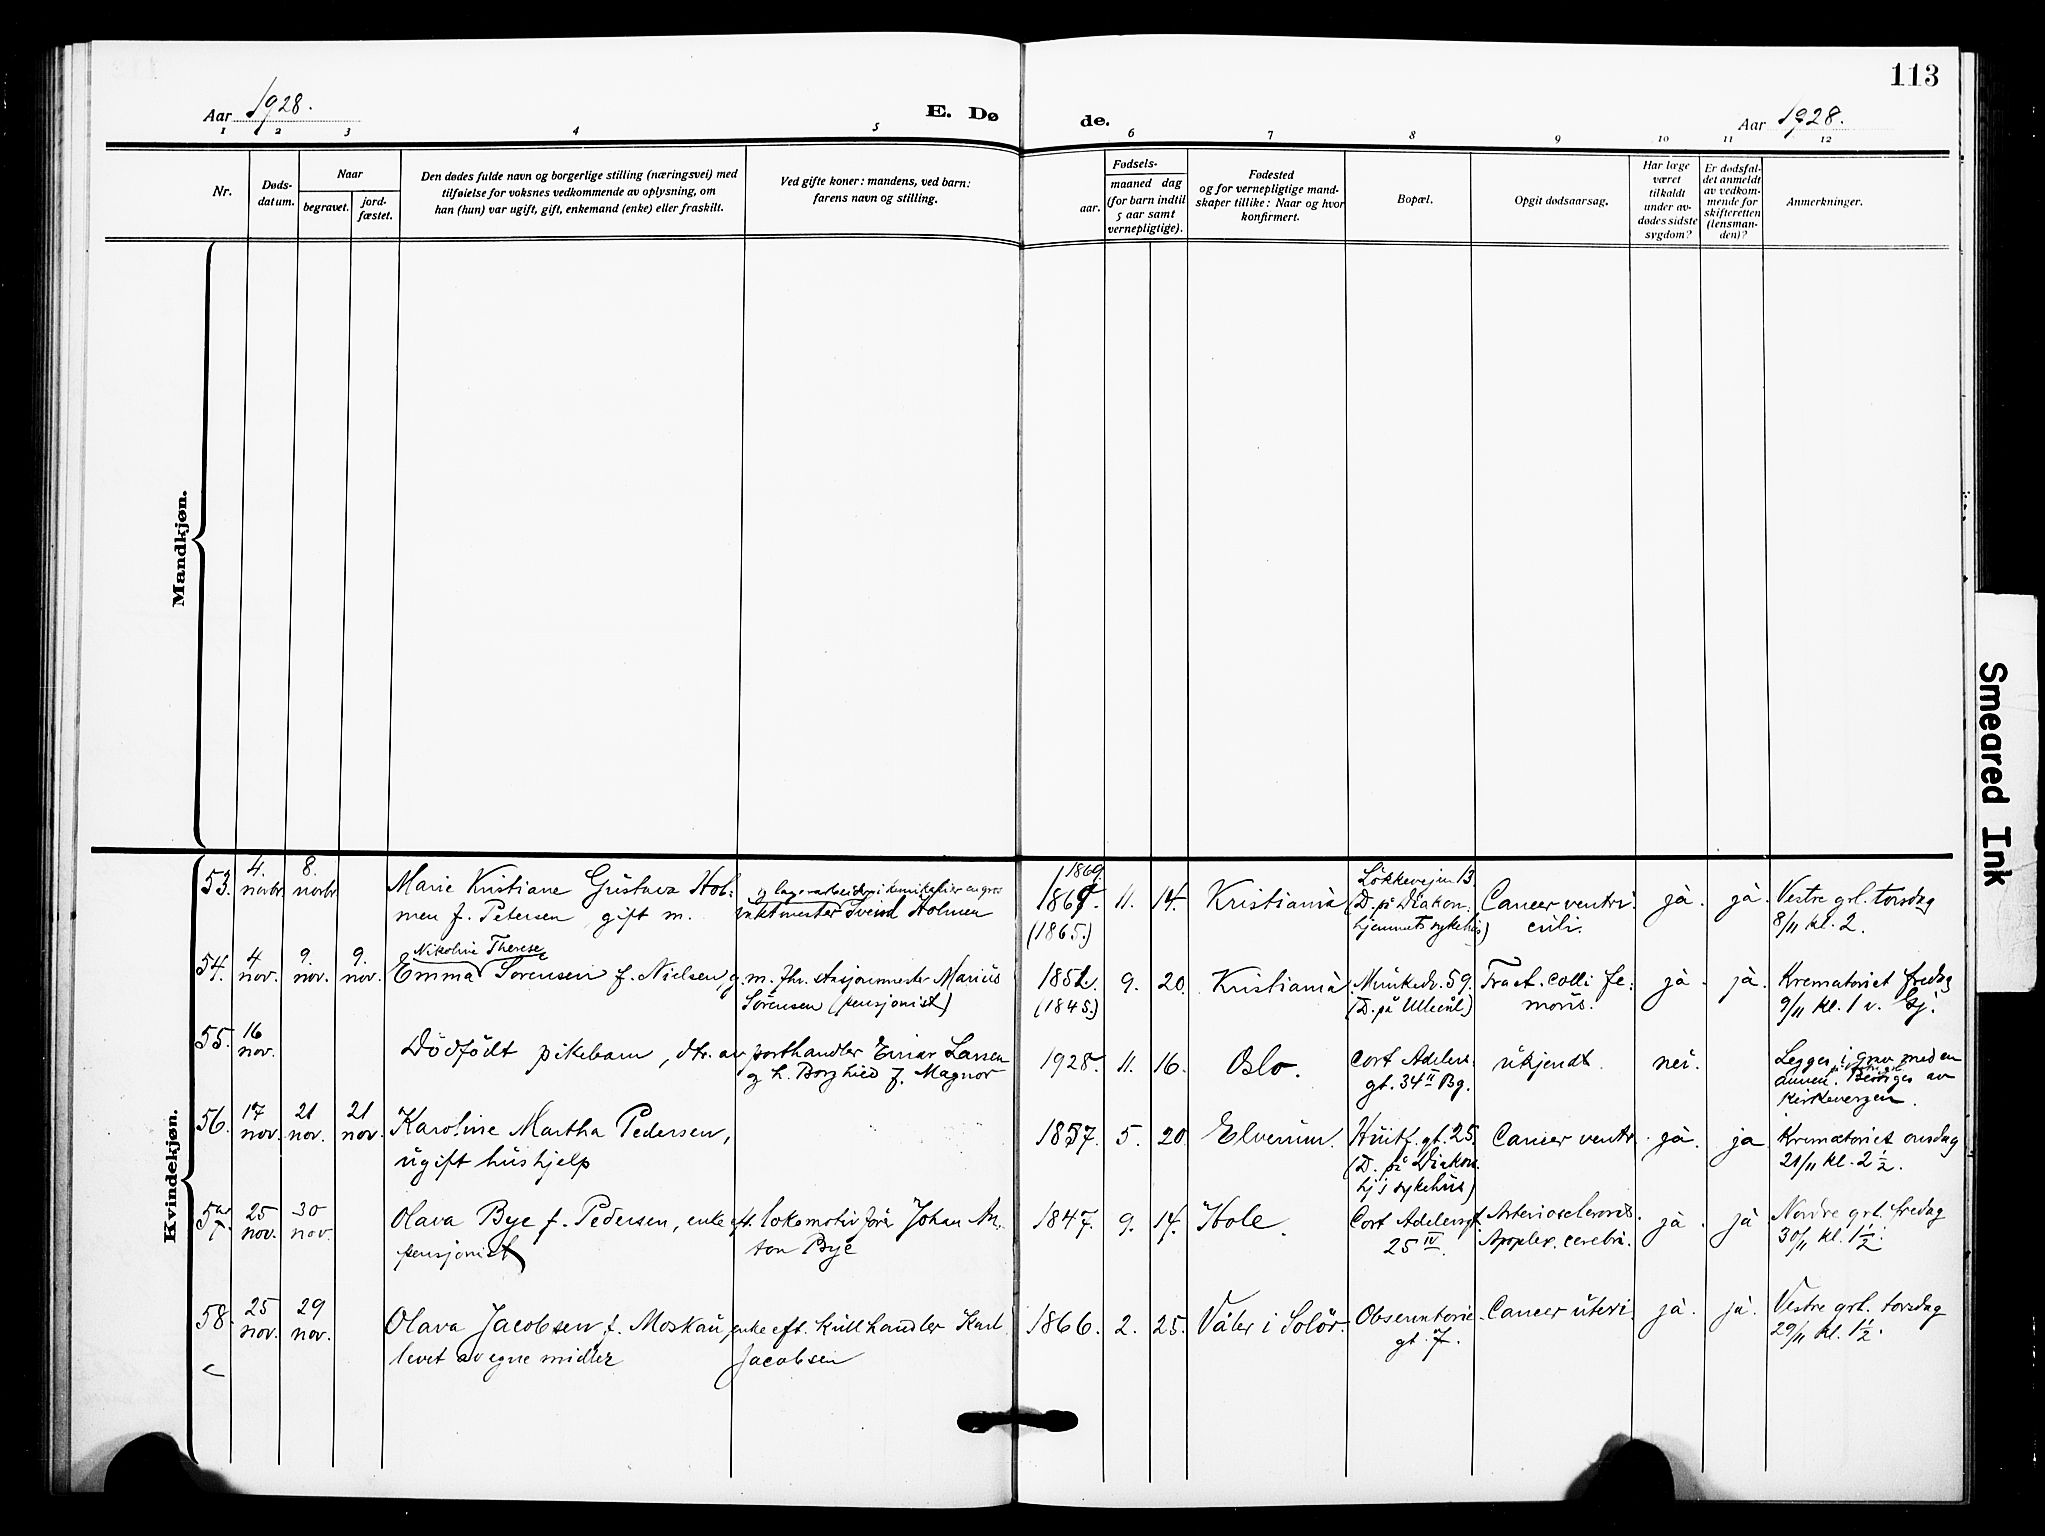 113
Aar 1928.
E. Dø
de.
Aar 1928.
1 2 3 4 5 6 7 8 9 10 11 12
Nr.
Døds-
datum.
Naar
begravet.
jord-
fæstet.
Den dødes fulde navn og borgerlige stilling (næringsvei) med
tilføielse for voksnes vedkommende av oplysning, om
han (hun) var ugift, gift, enkemand (enke) eller fraskilt.
Ved gifte koner: mandens, ved barn:
farens navn og stilling.
Fødsels-
aar.
maaned dag
(for barn indtil
5 aar samt
vernepligtige).
Fødested
og for vernepligtige mand-
skaper tillike: Naar og hvor
konfirmert.
Bopæl.
Opgit dødsaarsag.
Har læge
været
tilkaldt
under av-
dødes sidste
sygdom?
Er dødsfal-
det anmeldt
av vedkom-
mende for
skifteretten
(lensman-
den)?
Anmerkninger.
Mandkjøn.
Kvindekjøn.
53.
4.
novbr.
8.
novbr.
Marie Kristiane Gustava Hol-
men f. Petersen, gift m.
Svend Holmen
1869.
(1865.)
11.
14.
Kristiania
Lökkeveien 13.
(D. på Diakon.
hjemmets sykehus)
Cancer ventri-
culi.
ja.
ja.
Vestre grl. torsdag
8/11 kl. 2.
54.
4
nov.
9.
nov.
9.
nov.
Nikoline Therese
Emma Sörensen f. Nielsen, g.
m. fhv. stasjonsmester Marius
Sörensen (pensjonist)
(1845.)
9.
20.
Kristiania
Munkedv. 59.
(D. på Ullevål)
Fract. colli fe-
moris.
ja.
ja.
Krematoriet fredag
9/11 kl. 1
55.
16
nov.
Dödfödt pikebarn, dtr. av
Einar Larsen
og h. Borghild f. Magnor
1928.
11.
16.
Oslo.
Cort Adelers
gt. 34 II Bg.
ukjendt.
nei.
Legges i grav med en
annen. Besörges av
kirkevergen.
56.
17
nov.
21
nov.
21
nov.
Karoline Martha Pedersen,
ugift hushjelp
1857.
5.
20
Elverum.
Huitf. gt. 25.
(D. på Diakon.
hj's sykehus)
Cancer ventr.
ja.
ja
Krematoriet onsdag
21/11 kl. 2 1/2.
57
25
nov.
30
nov.
Olava Bye f. Pedersen, enke eft.
pensjonist
lokomotivförer Johan An-
ton Bye
1847.
9.
14.
Hole.
Cort Adelersgt.
25 IV.
Arteriosclerosis.
Apoplex. cerebri.
ja.
ja
Nordre grl. fredag
30/11 kl. 1 1/2.
58.
25
nov.
29
nov.
Olava Jacobsen f. Moskau,
levet av egne midler
enke eft. kullhandler Karl
Jacobsen
1866.
2.
25.
Våler i Solör.
Observatorie
gt. 7.
Cancer uteri.
ja.
ja.
Vestre grl. torsdag
29/11 kl. 1 1/2.
Smeared Ink